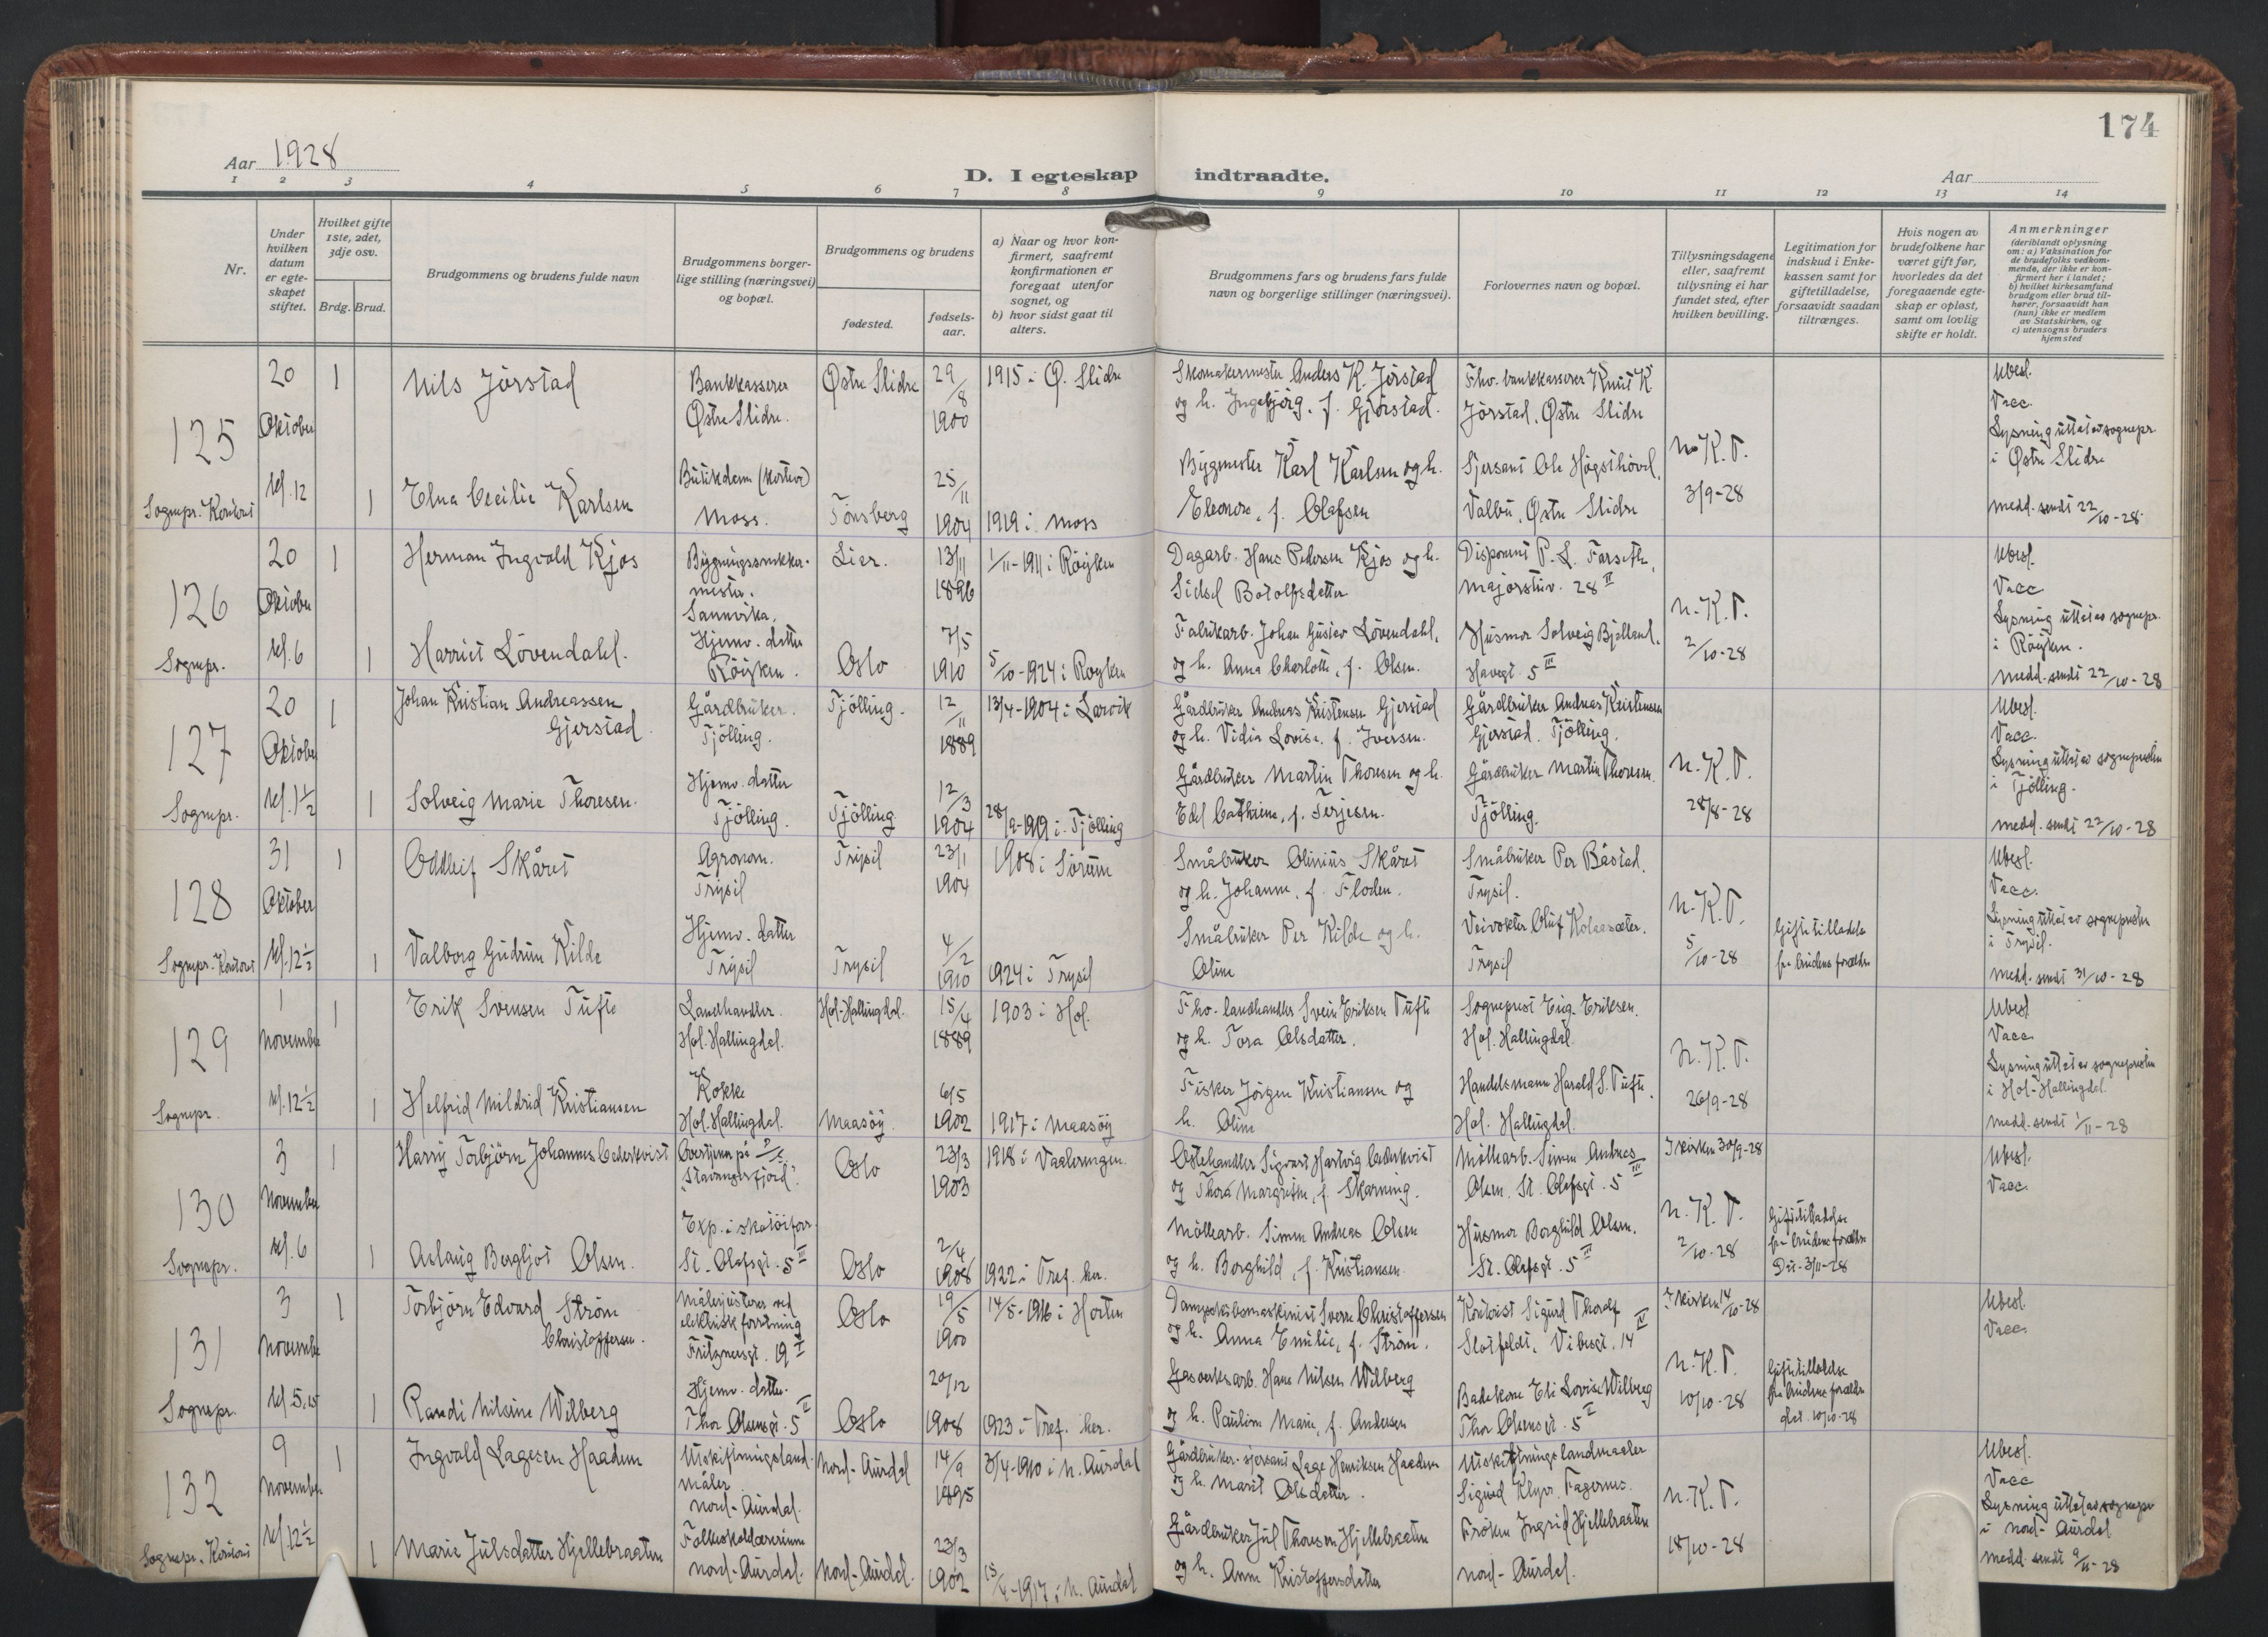 174
Aar 1928
D. I egteskap indtraadte.
Aar
1 2 3 4 5 6 7 8 9 10 11 12 13 14
Nr.
Under hvilken datum er egteskapet stiftet.
Hvilket gifte 1ste, 2det, 3dje osv.
Brdg. Brud.
Brudgommens og brudens fulde navn
Brudgommens borgerlige stilling (næringsvei) og bopæl.
Brudgommens og brudens
fødested.
fødselsaar.
a) Naar og hvor konfirmert, saafremt konfirmationen er foregaat utenfor sognet, og
b) hvor sidst gaat til alters.
Brudgommens fars og brudens fars fulde navn og borgerlige stillinger (næringsvei).
Forlovernes navn og bopæl.
Tillysningsdagene eller, saafremt tillysning ei har fundet sted, efter hvilken bevilling.
Legitimation for indskud i Enkekassen samt for giftetilladelse, forsaavidt saadan tiltrænges.
Hvis nogen av brudefolkene har været gift før, hvorledes da det foregaaende egteskap er opløst, samt om lovlig skifte er holdt.
Anmerkninger
(deriblandt oplysning om: a) Vaksination for de brudefolks vedkommende, der ikke er konfirmert her i landet; b) hvilket kirkesamfund brudgom eller brud tilhører, forsaavidt han (hun) ikke er medlem av Statskirken, og c) utensogns bruders hjemsted
125
Sognepr. Kontoret
20 Oktober kl. 12
1 Nils Jörstad
Bankkasserer
Östre Slidre.
Östre Slidre
29/8 1900
1915 i Ö. Slidre
Skomakermester Anders K. Jörstad
og h. Ingebjörg, f. Gjörstad.
Fhv. bankkasserer Knut K.
Jörstad, Östre Slidre
1 Elna Cecilie Karlsen
Moss.
Tönsberg
25/11 1904
1919 i Moss
Bygmester Karl Karlsen og h.
Eleonora, f. Olafsen
Sjersant Ole Högsthövd,
Valbu, Östre Slidre
N. K. T.
3/9-28
Ubesl.
Vacc.
Lysning uttat av sognepr.
i Östre Slidre
Medd. sendt 22/10-28
126
Sognepr.
20 Oktober kl. 6
1 Herman Ingvald Kjos
Bygningssnekkermester.
Sannvika.
Lier.
13/11 1896
1/11-1911 i Röyken
Dagarb. Hans Pedersen Kjos og h.
Sidsel Botolfsdatter
Disponent P. L. Farseth,
Majorstuv. 28 II
1 Harriet Lövendahl.
Hjemv. datter
Röyken.
Oslo
7/5 1910
5/10-1924 i Royken
Fabrikarb. Johan Gustav Lövendahl,
og h. Anna Charlotte, f. Olsen.
Husmor Solveig Bjelland,
Havegt. 5 III
N. K. T.
2/10-28
Ubesl.
Vacc
Lysning uttat av sognepr.
i Röyken.
Medd. sendt 22/10-28
127
Sognepr.
20 Oktober kl. 1 1/2
1 Johan Kristian Andreassen
Gjerstad.
Gårdbruker.
Tjölling.
Tjölling.
12/11 1889
13/4-1904 i Larvik
Gårdbruker Andreas Kristensen Gjerstad
og h. Vidia Lovise, f. Iversen.
Gårdbruker Andreas Kristensen
Gjerstad. Tjölling.
1 Solveig Marie Thoresen.
Hjemv. datter
Tjölling.
Tjölling
12/3 1904
28/9-1919 i Tjölling
Gårdbruker Martin Thoresen og h.
Edel Cathrine, f. Terjesen.
Gårdbruker Martin Thoresen.
Tjölling.
N. K. T.
28/8-28
Ubesl.
Vacc.
Lysning uttat av sognepresten
i Tjölling.
Medd. sendt 22/10-28
128
Sognepr. Kontoret
31 Oktober kl. 12 1/2
1 Oddleif Skåret
Agronom.
Trysil
Trysil
23/1 1904
1908 i Sörum
Småbruker Olinius Skåret
og h. Johanne, f. Floden.
Småbruker Per Båstad.
Trysil.
1 Valborg Gudrun Kilde
Hjemv. datter
Trysil
Trysil
4/2 1910
1924 i Trysil
Småbruker Per Kilde og h.
Oline
Veivokter Oluf Kolaasæter.
Trysil
N. K. T.
5/10-28
Giftetilladelse
fra brudens forældre
Ubesl.
Vacc.
Lysning uttat av sognepresten
i Trysil.
Medd. sendt 31/10-28
129
Sognepr.
1 November kl. 12 1/2
1 Erik Svensen Tufte
Landhandler.
Hol. Hallingdal.
Hol-Hallingdal.
15/4 1889
1903 i Hol.
Fhv. landhandler Svein Eriksen Tufte
og h. Tora Olsdatter.
Sogneprest Eig. Eriksen.
Hol. Hallingdal.
1 Helfrid Mildrid Kristiansen
Kokke
Hol. Hallingdal.
Maasöy.
6/5 1902
1917 i Maasöy
Fisker Jörgen Kristiansen og
h. Oline
Handelsmann Harald S. Tufte.
Hol. Hallingdal.
N. K. T.
26/9-28
Ubesl
Vacc.
Lysning uttat av sognepresten
i Hol-Hallingdal.
Medd. sendt 1/11-28
130
Sognepr.
3 November kl. 6
1 Harry Torbjörn Johannes Cederkvist
Overtjener på D/S
"Stavangerfjord".
Oslo
23/3 1903
1918 i Vaalerengen.
Ostehandler Sigvart Hartvig Cederkvist
og Thora Margrethe, f. Skarning.
Möllearb. Simen Andreas
Olsen. St. Olafsgt. 5 III
I kirken 30/9-28
1 Aslaug Bergljot Olsen.
Exp. i skotöiforr.
St. Olafsgt. 5 III
Oslo
2/4 1908
1922 i Tref. her.
Möllearb. Simen Andreas Olsen
og h. Borghild, f. Kristiansen.
Husmor Borghild Olsen.
St. Olafsgt. 5 III
N. K. T.
2/10-28
Giftetilladelse
fra brudens forældre
Dat. 3/11-28
Ubesl.
Vacc.
131
Sognepr.
3 November kl. 5.15
1 Torbjörn Edvard Ström
Christoffersen.
Målerjusterer ved
elektrisk forretning
Fritznersgt. 19 I
Oslo
19/5 1900
14/5-1916 i Horten
Dampskibsmaskinist Sverre Christoffersen
og h. Anna Emilie, f. Ström.
Kontorist Sigurd Thoralf
Slotfeldt, Vibesgt. 14 IV
I kirken 14/10-28
1 Randi Nilsine Wilberg
Hjemv. datter.
Thor Olsensgt. 5 II
Oslo
20/12 1908
1923 i Tref. her.
Gasverksarb. Hans Nilsen Wilberg
og h. Pauline Marie, f. Andersen
Badekone Eli Lovise Wilberg
Thor Olsensgt. 5 II
N. K. T.
10/10-28
Giftetilladelse
fra brudens forældre
dat. 10/10-28
Ubesl.
Vacc.
132
Sognepr. Kontoret
9 November kl. 12 1/2
1 Ingvald Lagesen Haadem
Utskiftningslandmåler
Nord-Aurdal.
Nord-Aurdal
14/9 1895
3/4-1910 i N. Aurdal
Gårdbruker-sjersant Lage Henriksen Haadem
og h. Marit Olsdatter.
Utskiftningslandmaaler
Sigurd Fagernes.
1 Marie Julsdatter Hjellebraaten
Folkeskolelærerinne
Nord-Aurdal.
Nord-Aurdal.
23/3 1902
15/4-1917 i N. Aurdal
Gårdbruker Jul Thoresen Hjellebraaten
og h. Anne Kristoffersdatter
Fröken Ingrid Hjellebraaten
Nord-Aurdal.
N. K. T.
18/10-28
Ubesl.
Vacc
Lysning uttat av sognepr
i Nord-Aurdal
Medd. sendt 9/11-28